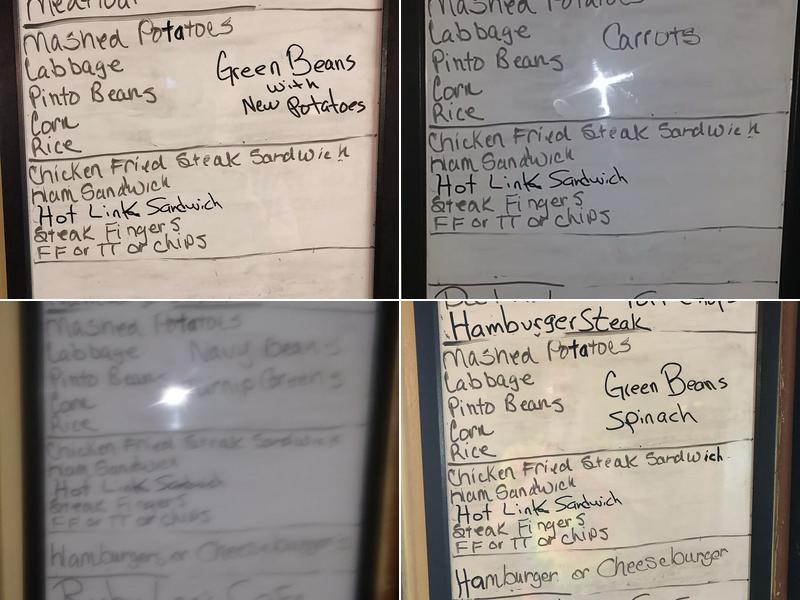 Meatloaf
Mashed Potatoes
Cabbage
Pinto Beans
Corn
Rice
Green Beans
with
New Potatoes
Chicken Fried Steak Sandwich
Ham Sandwich
Hot Link Sandwich
Steak Fingers
FF or TT or Chips
Mashed Potatoes
Cabbage
Pinto Beans
Corn
Rice
Carrots
Chicken Fried Steak Sandwich
Ham Sandwich
Hot Link Sandwich
Steak Fingers
FF or TT or Chips
Mashed Potatoes
Cabbage
Pinto Beans
Corn
Rice
Navy Beans
Turnip Greens
Chicken Fried Steak Sandwich
Ham Sandwich
Hot Link Sandwich
Steak Fingers
FF or TT or Chips
Hamburgers or Cheeseburgers
Hamburger Steak
Mashed Potatoes
Cabbage
Pinto Beans
Corn
Rice
Green Beans
Spinach
Chicken Fried Steak Sandwich
Ham Sandwich
Hot Link Sandwich
Steak Fingers
FF or TT or Chips
Hamburger or Cheeseburger